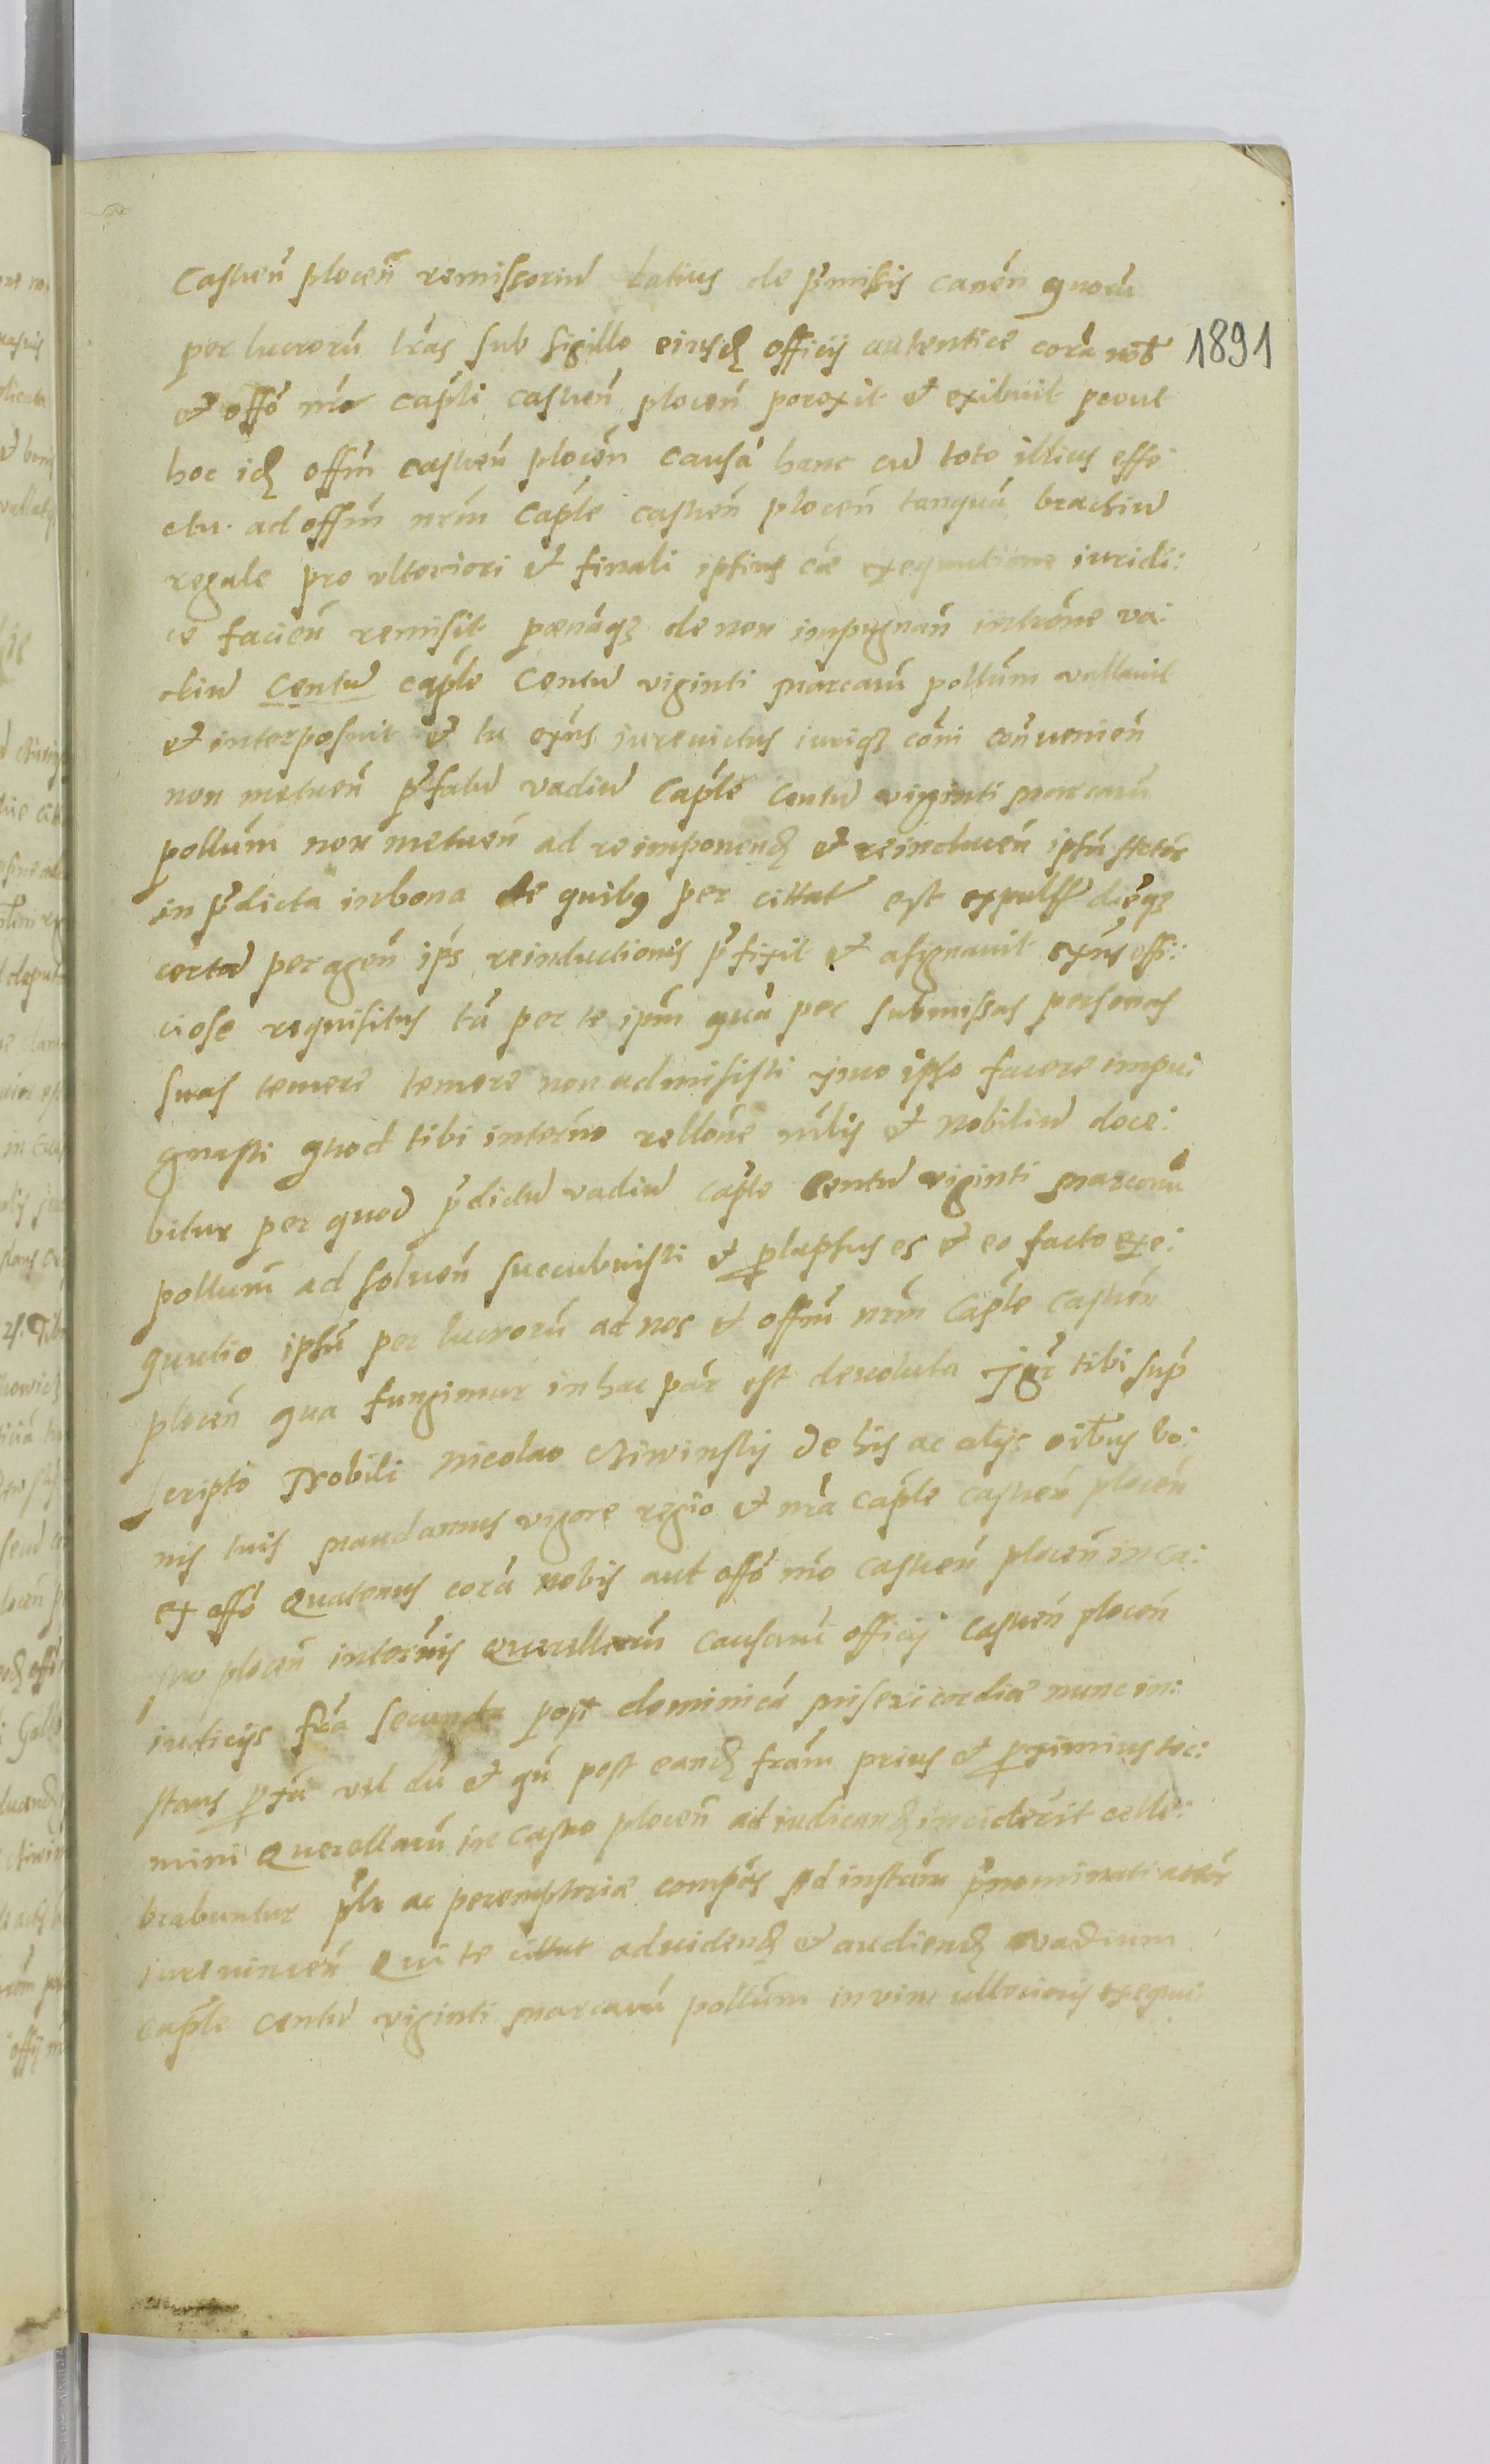 Castren̄ plocen̄ remissoriu latius de p̄missis canen̄ quoru
per lucroru̅ lr̄as sub sigillo eiusdꝫ officij autentice cora̅ nob̄
1891
et offo̅ nr̄o capt̄li castren̄ plocen̄ porexit et exibuit prout
hoc idꝫ offm̄ castren̄ plocen̄ causa̅ hanc cu toto illius effe:
ctu. ad offm̄ nr̄m capt̄le castren̄ plocen̄ tanqua̅ brachiu
regale pro vlteriori et finali ipsius cae exequutione iuridi:
ce facien̄ remisit poena̅qꝫ de non impugnan̄ intro̅ne va:
diu centu capt̄le Centu viginti marcaru̅ pollu̅m vallauit
et interposuit et tu exn̄s iurevictus iuriqꝫ co̅ni co̅nuenien̄
non metuen̄ p̄fatu vadiu capt̄le centu viginti marcaru̅
pollu̅m non metuen̄ ad reimponendꝫ et reinducen̄ ipsu̅ Actor̄
in p̄dicta inbona de quibꝰ per cittat̄ est expulsꝰ die̅qꝫ
certu peragen̄ ip̄s reinductionis p̄fixit et asignauit exn̄s offi:
ciose requisitus ta̅ per te ipm̄ qua̅ per submissas personas
suas temere temere non admisisti ymo ipso facere impu:
gnasti quod tibi inter̄no rello̅ne mlis et nobiliu doce:
bitur per quod p̄dictu vadiu capt̄le Centu viginti marcaru̅
pollu̅m ad soluen̄ succubuisti et p̱lapsus es et eo facto exe:
quutio ipsu̅ per lucroru̅ ad nos et offm̄ nr̄m Capt̄le castren̄
plocen̄ qua fungimur in hac par̄ est deuoluta Jgr̄ tibi sup̄
scripto Nobili Nicolao Niwinskij De his ac alijs oi̅bus bo:
nis tuis mandamus vigore regio et nr̄a capt̄le castren̄ plocen̄
ex offo̅ Quatenus cora̅ nobis aut offo̅ nr̄o castren̄ plocen̄ in ca:
stro plocen̄ inter̄nis Querellaru̅ causaru̅ officij castren̄ plocen̄
iudicijs fr̄ia secunda post dominica̅ misericordiae nunc in:
stans p̱xa̅ vel du̅ et qn̄ post eandꝫ fr̄iam prius et p̱ximius ter:
mini Querellaru̅ in castro plocen̄ ad iudicandꝫ inciderit celle:
brabuntur p̄lr ac peremptoriae compa̅s ad instan̄ p̄nominati actor̄
iurevincen̄ Qui te cittat ad videndꝫ et audiendꝫ vadium
capt̄le centu viginti marcaru̅ pollu̅m in vim vlterioris exequi: